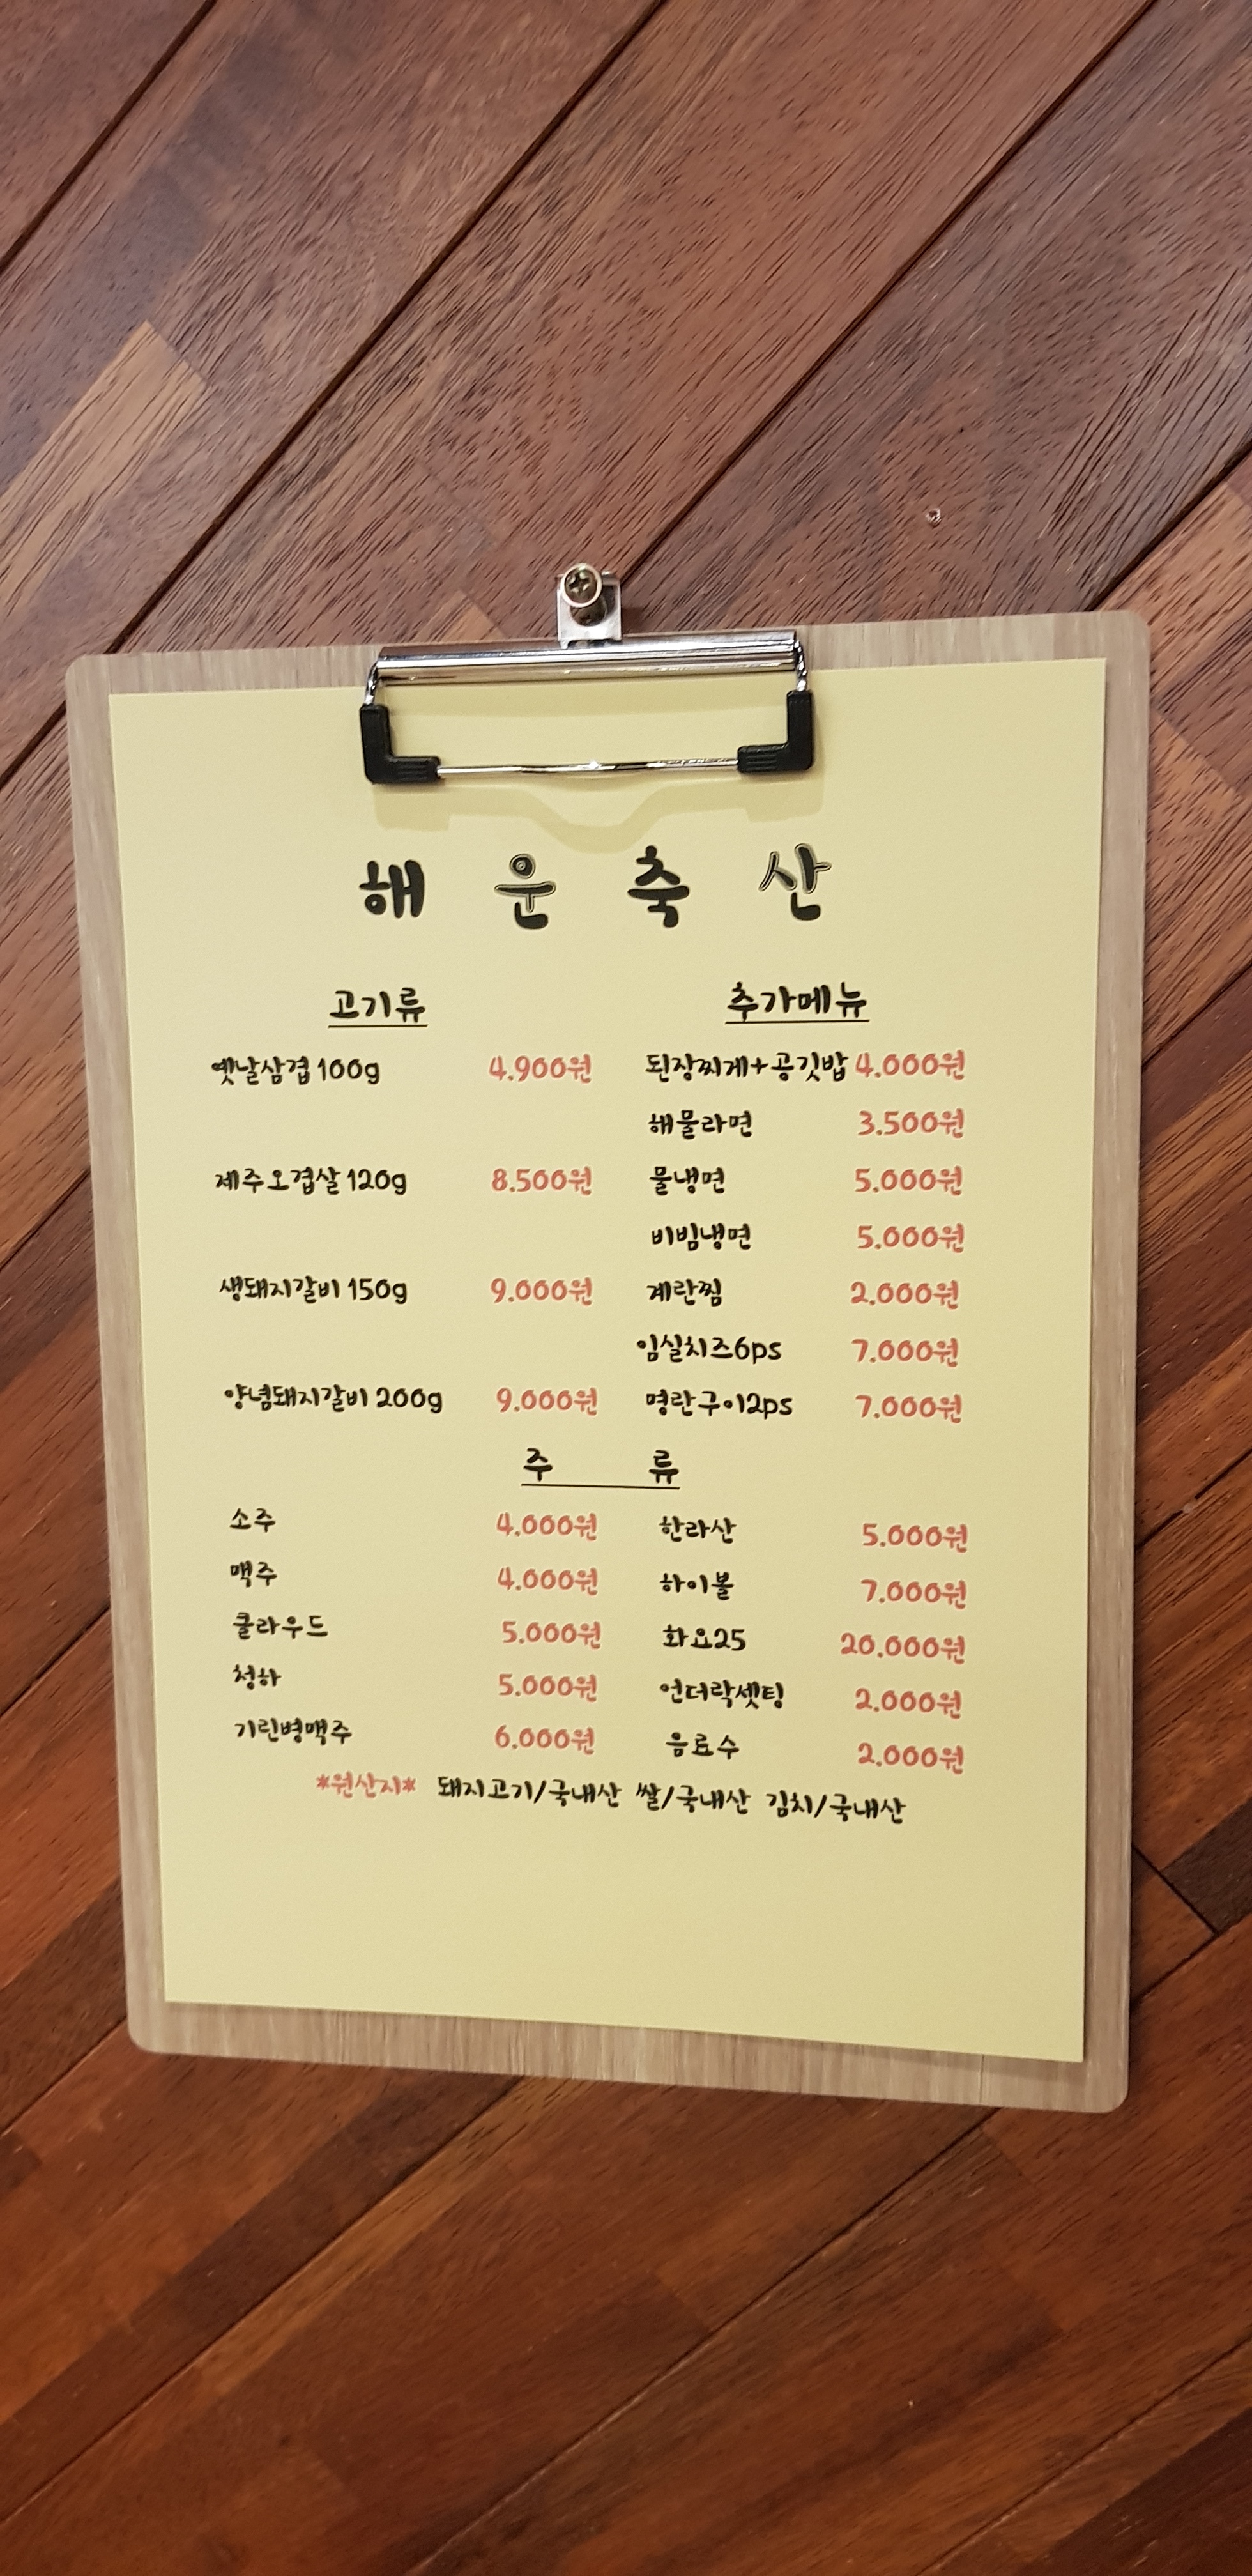 해 운 축 산
고기류
옛날삼겹 100g 4.900원
제주오겹살 120g 8.500원
생돼지갈비 150g 9.000원
양념돼지갈비 200g 9.000원
추가메뉴
된장찌게+공깃밥 4.000원
해물라면 3.500원
물냉면 5.000원
비빔냉면 5.000원
계란찜 2.000원
임실치즈6ps 7.000원
명란구이2ps 7.000원
주 류
소주 4.000원
맥주 4.000원
클라우드 5.000원
청하 5.000원
기린병맥주 6.000원
한라산 5.000원
하이볼 7.000원
화요25 20.000원
언더락셋팅 2.000원
음료수 2.000원
*원산지* 돼지고기/국내산 쌀/국내산 김치/국내산